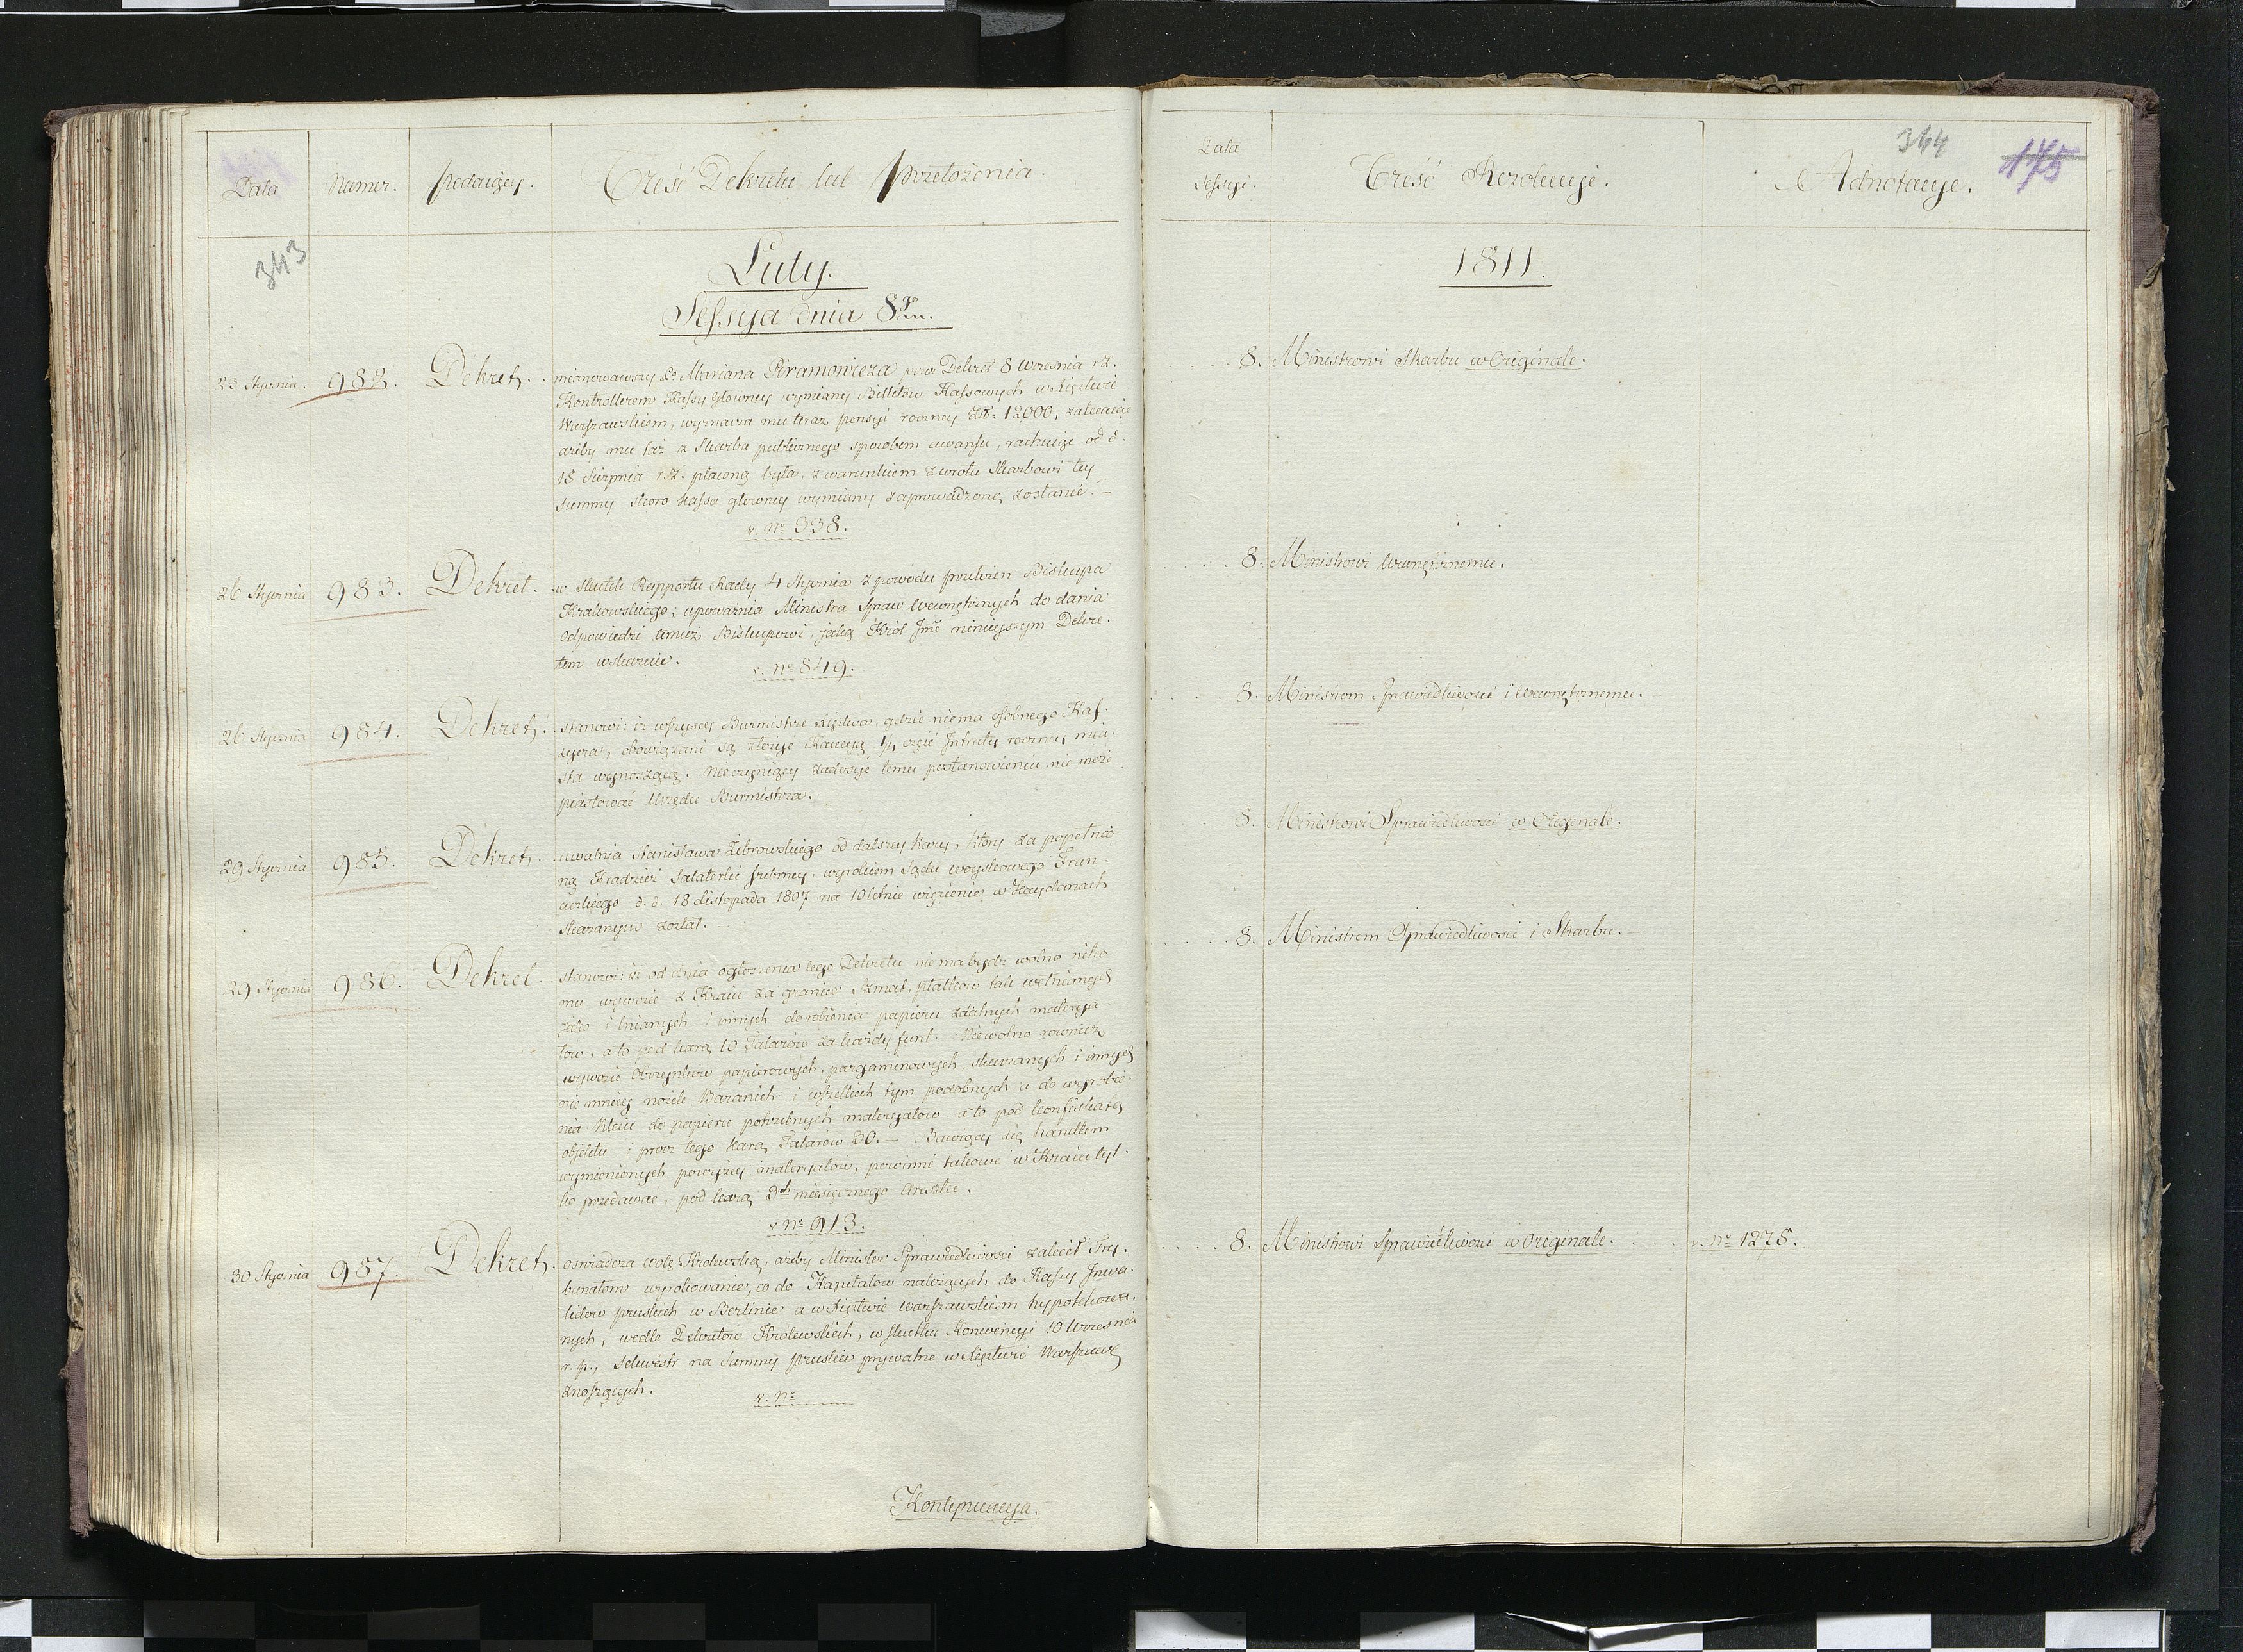 Data
Numer.
podaiący.
Treść Dekretu lub przełożenia.
343
Luty.
Sessya dnia 8go Lu.
23 Stycznia. 982. Dekret.
mianowawszy Po Mariana Piramowicza przez Dekret 8 Wrzesnia r.z.
Kontrollerem Kassy Głowney wymiany Billetow Kassowych w Xięstwie
Warszawskiem, wyznacza mu teraz pensyi roczney Złt: 12000, zalecaiąc
ażeby mu taż z Skarbu publicznego sposobem awansu, rachuiąc od d.
15 Sierpnia r.z. płaconą była, z warunkiem zwrotu Skarbowi tey
summy skoro kassa głowney wymiany zaprowadzoną zostanie. —
v. No 338.
26 Stycznia 983. Dekret.
w skutek Rapportu Rady 4 Stycznia z powodu przełożeń Biskupa
Krakowskiego, upoważnia Ministra Spraw Wewnętrznych do dania
odpowiedzi temuż Biskupowi, jaką Król Jmć ninieyszym Dekre-
tem wskazuie.
v. No 849.
26 Stycznia 984. Dekret.
stanowi: iż wszyscy Burmistrze Xięstwa, gdzie niema osobnego Kas-
syera, obowiązani są złożyć Kaucyą 1/4 część Intraty roczney mia-
sta wynoszącą. Nieczyniący zadosyć temu postanowieniu, nie może
piastować Urzędu Burmistrza.
29 Stycznia 985. Dekret.
uwalnia Stanisława Zebrowskiego od dalszey kary, ktory za popełnio-
ną Kradzież Salaterki srebrney, wyrokiem Sądu woyskowego Fran-
cuzkiego d. d. 18 Listopada 1807 na 10letnie więzienie w Kaydanach
skazanym został. —
29 Stycznia 986. Dekret.
stanowi: iż od dnia ogłoszenia tego Dekretu nie ma bydz wolno niko-
mu wywozić z Kraiu za granicę Szmat, płatkow tak wełnianych
jako i lnianych i innych do robienia papieru zdatnych materya-
łow, a to pod karą 10 Talarow za każdy funt. Niewolno rownież
wywozić Obrzynkow papierowych, pargaminowych, skurzanych i innych
nie mniey nożek Baranich i wszelkich tym podobnych a do wyrobie-
nia Kleiu do papieru potrzebnych materyałow a to pod konfiskatą
objektu i procz tego karą Talarow 30. — Bawiący się handlem
wymienionych powyżey materyałow, powinni takowe w Kraiu tyl-
ko przedawać, pod karą miesięcznego Aresztu.
v. No 913.
30 Stycznia 987. Dekret.
oswiadcza wolę Krolewską, ażeby Minister Sprawiedliwosci zalecił Try-
bunałom wyrokowanie, co do Kapitałow należących do Kassy Inwa-
lidow pruskich w Berlinie a w Xięstwie Warszawskiem hypotekowa-
nych, wedle Dekretow Krolewskich, w skutku Konwencyi 10 Wrzesnia
r. p., Sekwestr na Summy pruskie prywatne w Xięstwie Warszaws
znoszących.
v. No
Kontynuacya.
Data
Sessyi.
Treść Rezolucyi.
Adnotacye.
344
175
1811.
8. Ministrowi Skarbu w Originale.
8. Ministrowi Wewnętrznemu.
8. Ministrom Sprawiedliwosci i Wewnętrznemu.
8. Ministrowi Sprawiedliwosci w Originale.
8. Ministrom Sprawiedliwosci i Skarbu. —
8. Ministrowi Sprawiedliwosci w Originale. v. No 1275.